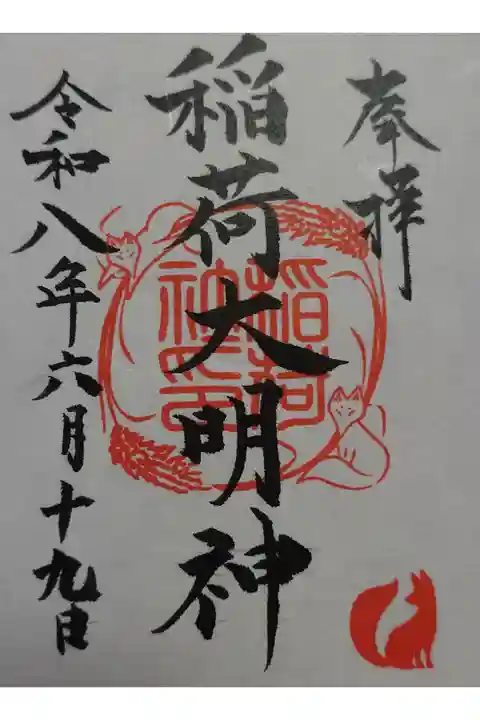 奉拝
稲荷大明神
稲荷
神社印
令和八年六月十九日